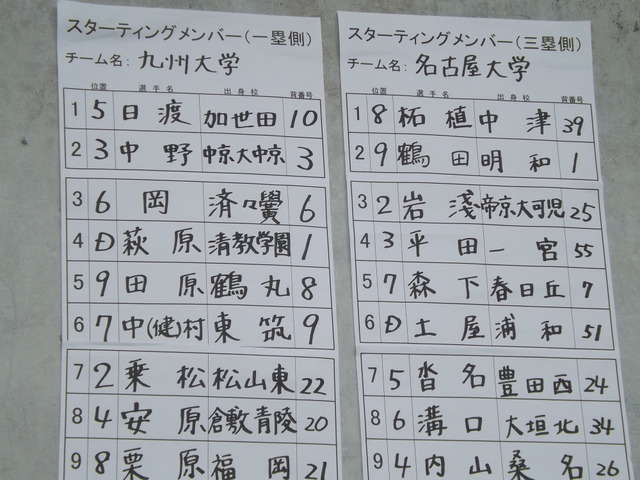 スターティングメンバー（一塁側）
チーム名：九州大学
位置 選手名 出身校 背番号
1 5 日渡 加世田 10
2 3 中野 中京大中京 3
3 6 岡 済々黌 6
4 D 萩原 清教学園 1
5 9 田原 鶴丸 8
6 7 中(健)村 東筑 9
7 2 乗松 松山東 22
8 4 安原 倉敷青陵 20
9 8 栗原 福岡 21
スターティングメンバー（三塁側）
チーム名：名古屋大学
位置 選手名 出身校 背番号
1 8 柘植 中津 39
2 9 鶴田 明和 1
3 2 岩淺 帝京大可児 25
4 3 平田 一宮 55
5 7 森下 春日丘 7
6 D 土屋 浦和 51
7 5 沓名 豊田西 24
8 6 溝口 大垣北 34
9 4 内山 桑名 26